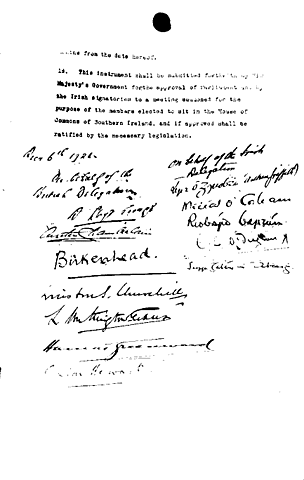 from the date hereof.
18. This instrument shall be submitted forthwith by His
Majesty's Government for the approval of Parliament and by
the Irish signatories to a meeting summoned for the
purpose of the members elected to sit in the House of
Commons of Southern Ireland, and if approved shall be
ratified by the necessary legislation.
Decr 6th 1921.
On behalf of the
British Delegation
D Lloyd George
Austen Chamberlain
Birkenhead.
Winston S. Churchill
L Worthington-Evans
Hamar Greenwood
Gordon Hewart
On behalf of the Irish
Delegation
Art Ó Gríobhtha
Mícheál Ó Coileain
Riobárd Bartún